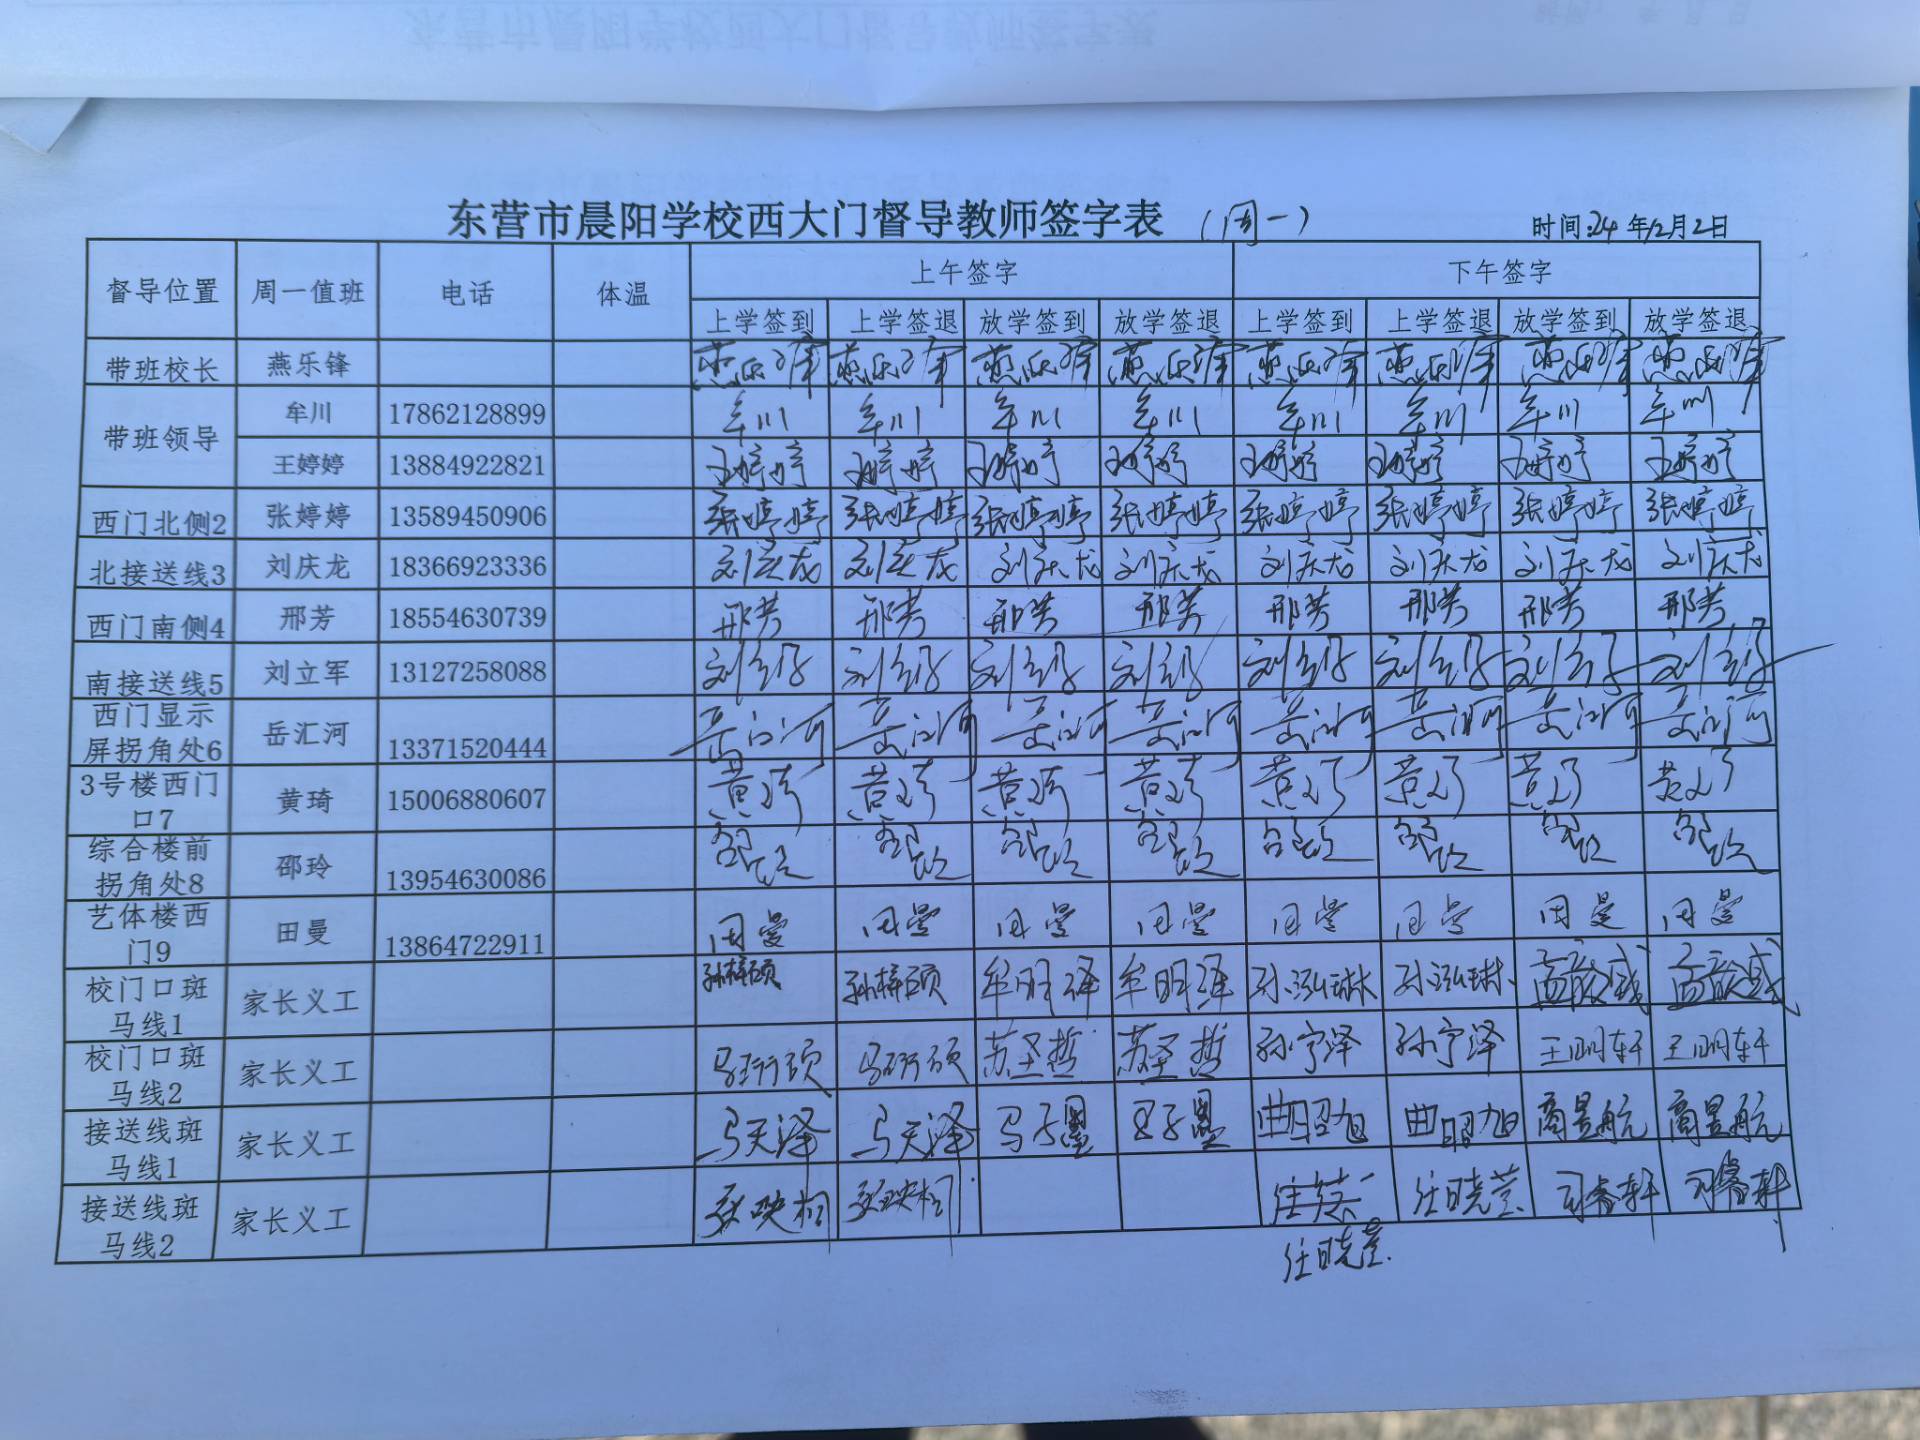 东营市晨阳学校西大门督导教师签字表 (周一)
时间:24年12月2日
督导位置 周一值班 电话 体温 上午签字 下午签字
上学签到 上学签退 放学签到 放学签退 上学签到 上学签退 放学签到 放学签退
带班校长 燕乐锋 燕乐锋 燕乐锋 燕乐锋 燕乐锋 燕乐锋 燕乐锋 燕乐锋 燕乐锋
带班领导 牟川 17862128899 牟川 牟川 牟川 牟川 牟川 牟川 牟川 牟川
王婷婷 13884922821 王婷婷 王婷婷 王婷婷 王婷婷 王婷婷 王婷婷 王婷婷 王婷婷
西门北侧2 张婷婷 13589450906 张婷婷 张婷婷 张婷婷 张婷婷 张婷婷 张婷婷 张婷婷 张婷婷
北接送线3 刘庆龙 18366923336 刘庆龙 刘庆龙 刘庆龙 刘庆龙 刘庆龙 刘庆龙 刘庆龙 刘庆龙
西门南侧4 邢芳 18554630739 邢芳 邢芳 邢芳 邢芳 邢芳 邢芳 邢芳 邢芳
南接送线5 刘立军 13127258088 刘立军 刘立军 刘立军 刘立军 刘立军 刘立军 刘立军 刘立军
西门显示
屏拐角处6 岳汇河 13371520444 岳汇河 岳汇河 岳汇河 岳汇河 岳汇河 岳汇河 岳汇河 岳汇河
3号楼西门
口7 黄琦 15006880607 黄琦 黄琦 黄琦 黄琦 黄琦 黄琦 黄琦 黄琦
综合楼前
拐角处8 邵玲 13954630086 邵玲 邵玲 邵玲 邵玲 邵玲 邵玲 邵玲 邵玲
艺体楼西
门9 田曼 13864722911 田曼 田曼 田曼 田曼 田曼 田曼 田曼 田曼
校门口斑
马线1 家长义工 孙梓硕 孙梓硕 牟明泽 牟明泽 孙泓琳 孙泓琳
校门口斑
马线2 家长义工 苏圣哲 苏圣哲 孙宁泽 孙宁泽 王明轩 王明轩
接送线斑
马线1 家长义工 马天泽 马天泽 马子墨 曲昭旭 曲昭旭 商昱航 商昱航
接送线斑
马线2 家长义工 张映桐 张映桐 任晓萱 司睿轩 司睿轩
任晓萱